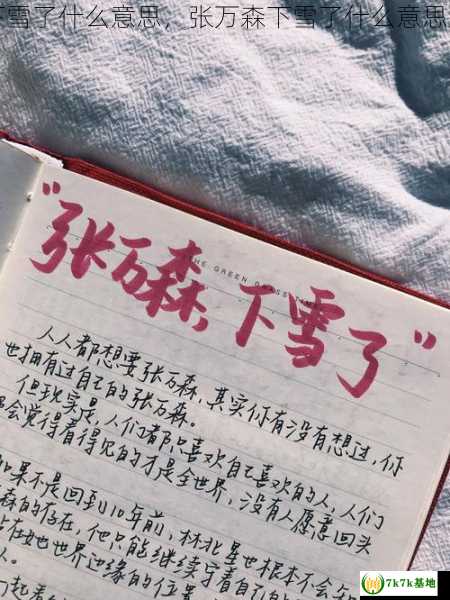 下雪了什么意思，张万森下雪了什么意思
THE GREEN GRASS
"张万森,下雪了"
人人都想要张万森,其实你有没有想过,你
也拥有过自己的张万森。
但现实是,人们都只喜欢自己喜欢的人,人们
会觉得看得见的才是全世界,没有人愿意回头
如果不是回到10年前,林北星也根本不会
森的存在,他只能继续守着自己的
在她世界边缘的位置
人。
7k7k基地